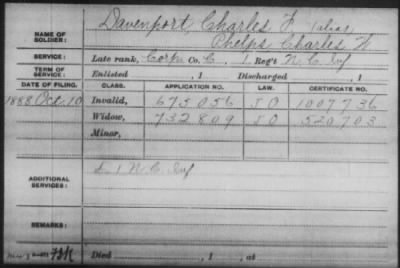 NAME OF SOLDIER: Davenport, Charles F. (alias)
Phelps, Charles H
SERVICE: Late rank, Corp Co. C, 1 Reg't N. C. Inf
TERM OF SERVICE: Enlisted , 1 Discharged , 1
DATE OF FILING. CLASS. APPLICATION NO. LAW. CERTIFICATE NO.
1888 Oct. 10 Invalid, 675056 1007736
Widow, 732809 520703
Minor,
ADDITIONAL SERVICES: 1 N. C. Inf
REMARKS:
Died , 1 , at